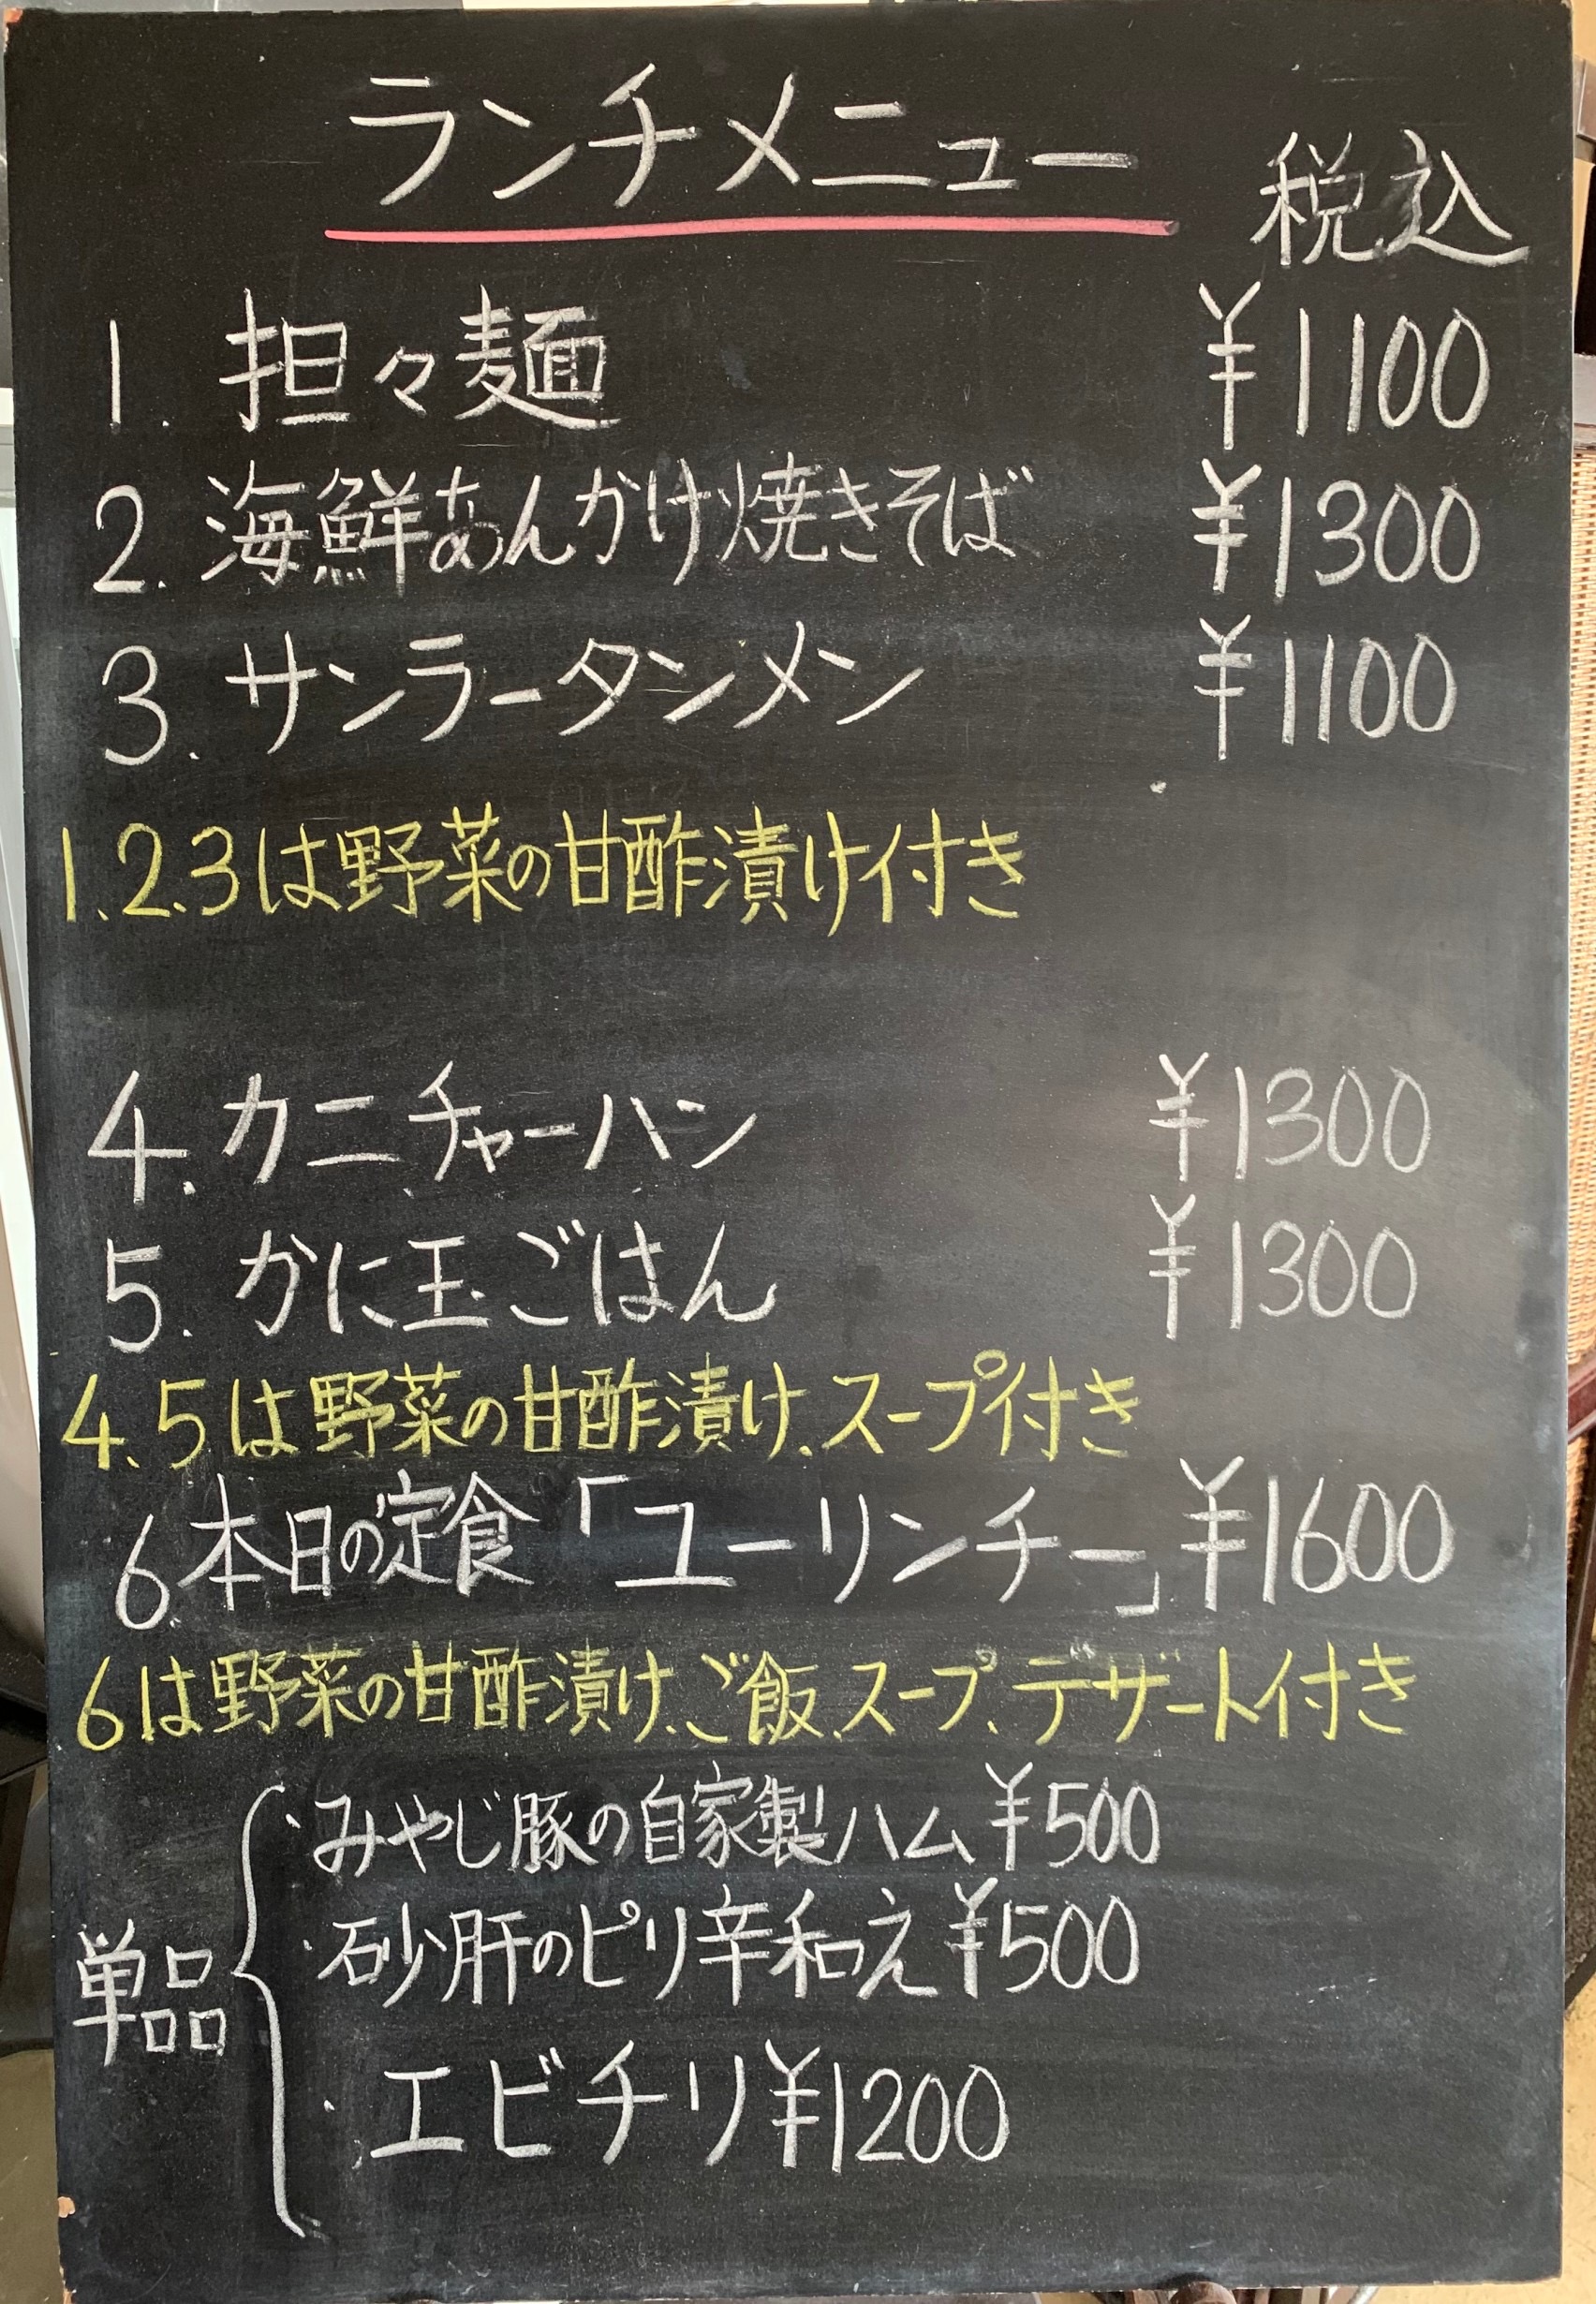 ランチメニュー 税込
1. 担々麺 ¥1100
2. 海鮮あんかけ焼きそば ¥1300
3. サンラータンメン ¥1100
1.2.3は野菜の甘酢漬け付き
4. カニチャーハン ¥1300
5. かに玉ごはん ¥1300
4.5は野菜の甘酢漬け、スープ付き
6.本日の定食「ユーリンチー」¥1600
6は野菜の甘酢漬け、ご飯、スープ、デザート付き
単品
・みやじ豚の自家製ハム ¥500
・砂肝のピリ辛和え ¥500
・エビチリ ¥1200